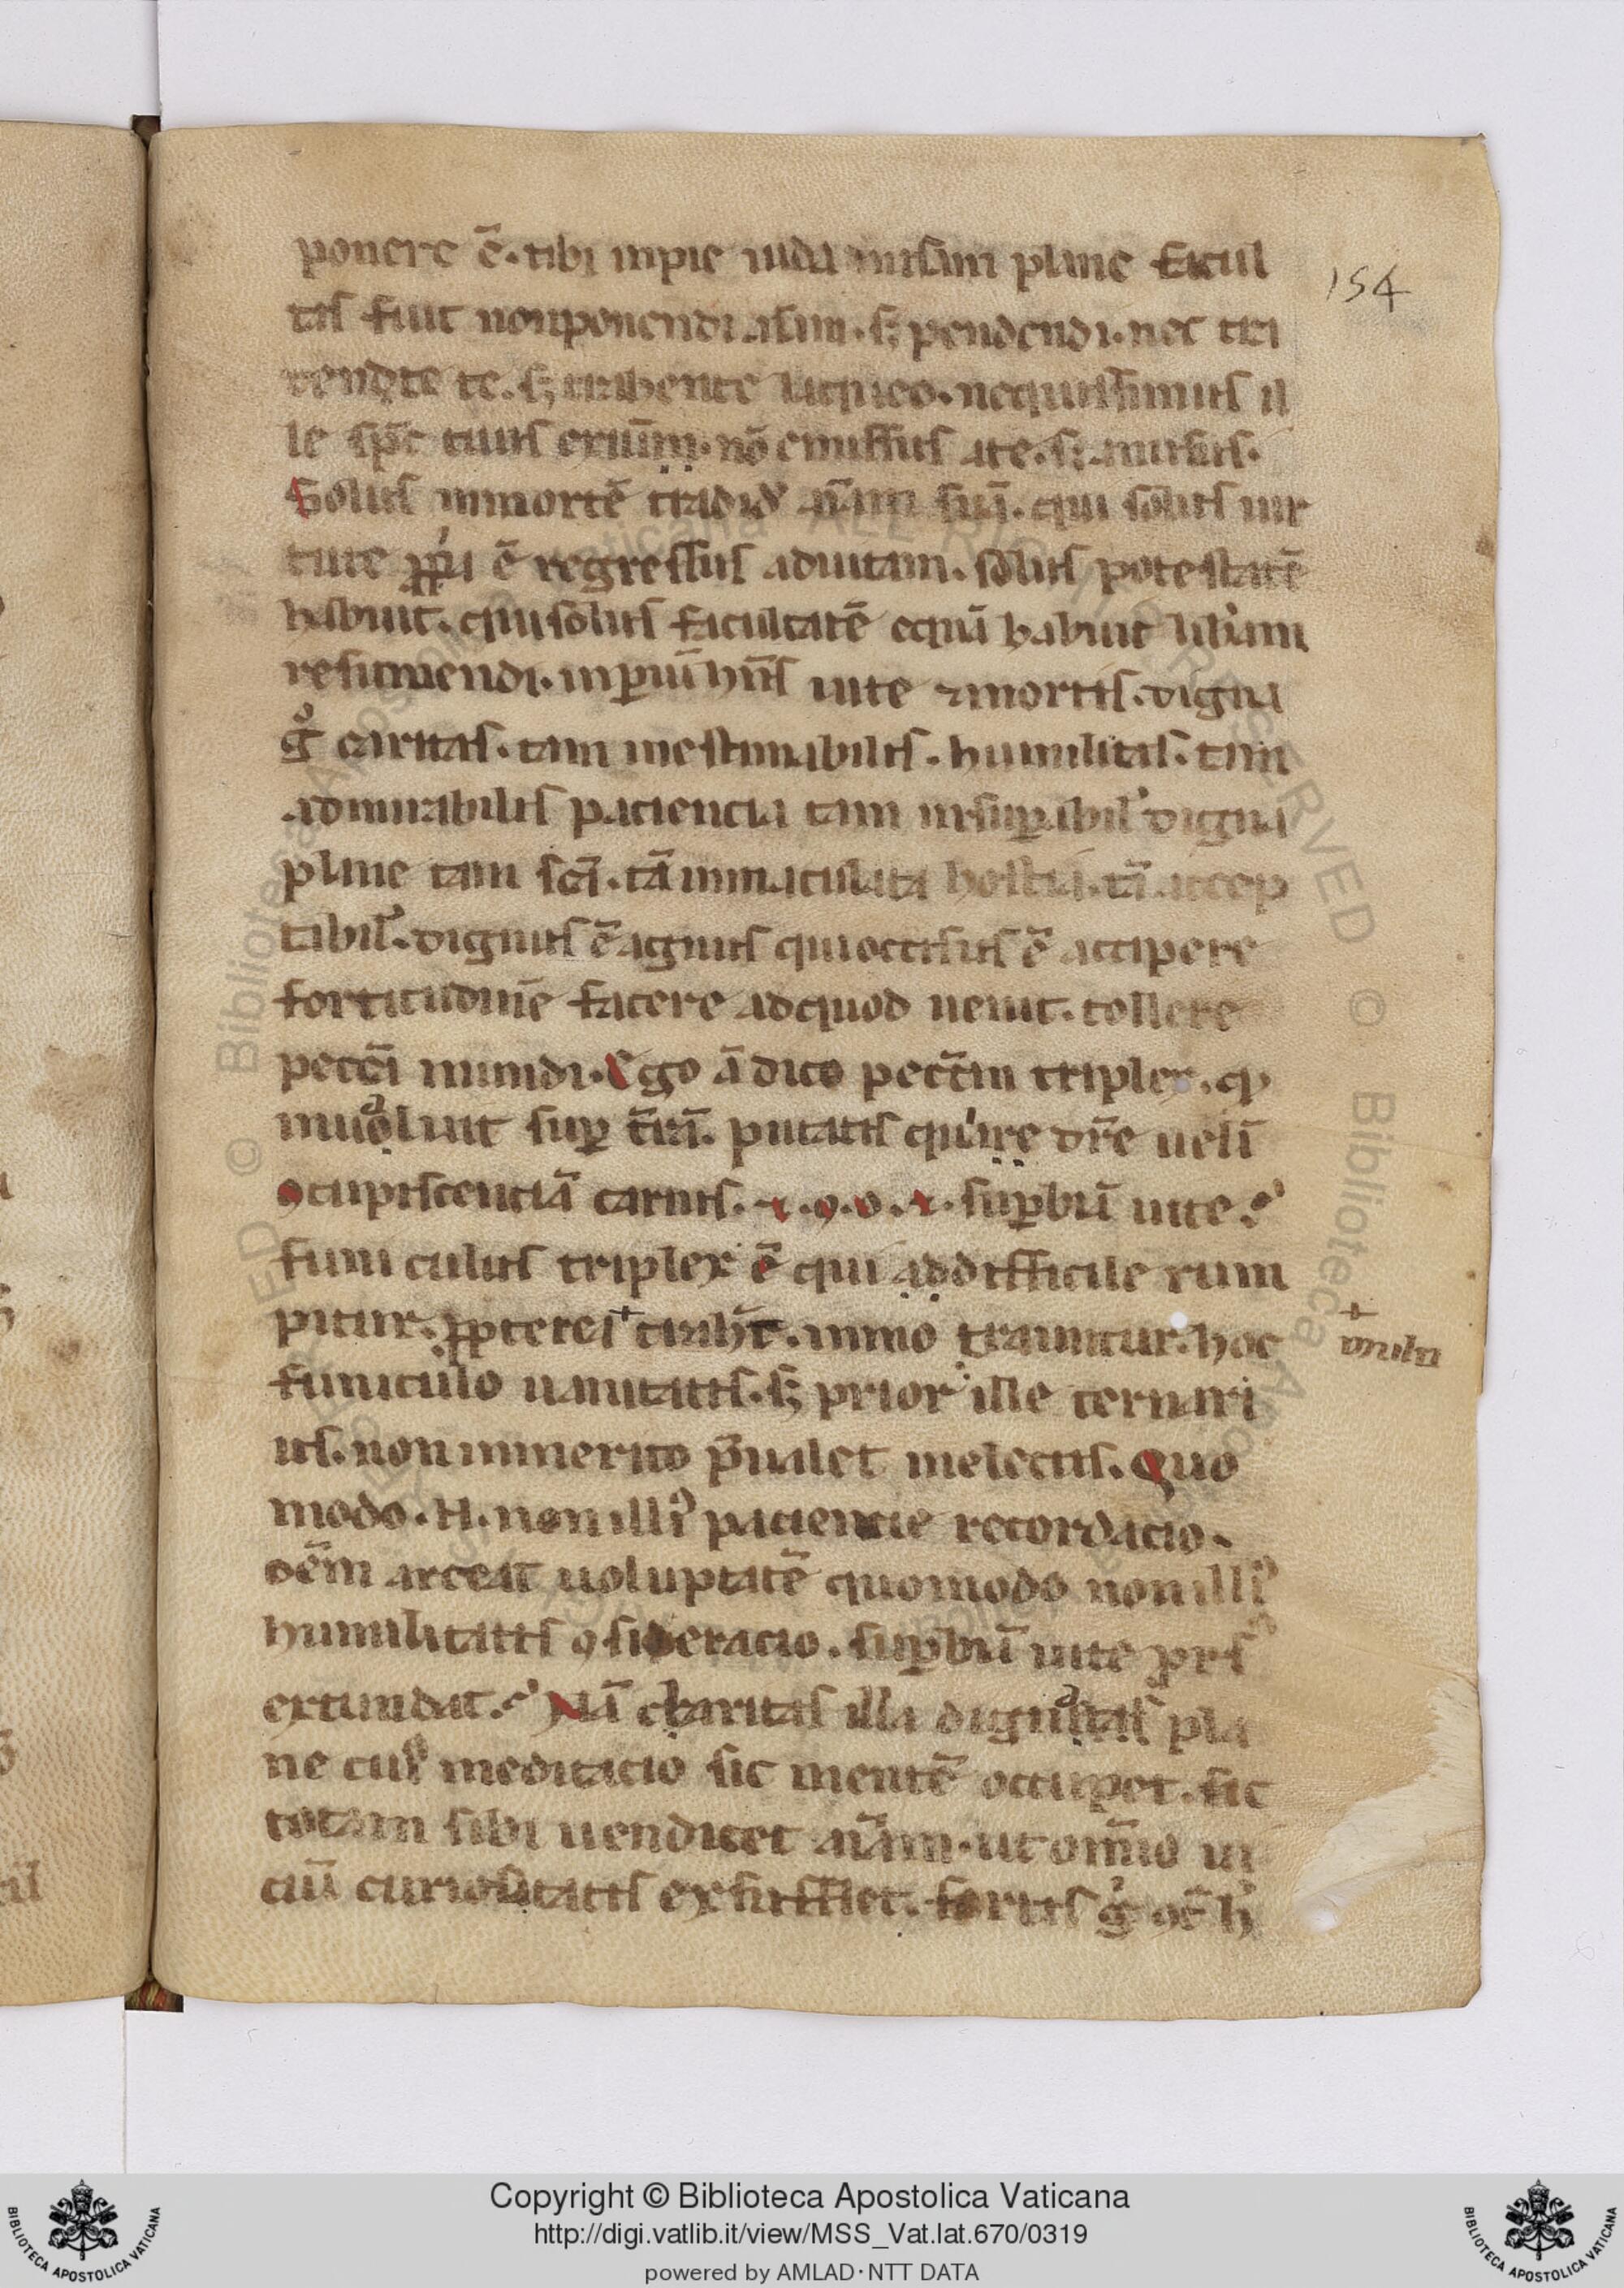 ponere ē. tibi inpie iuda misam plane facul
tas fuit non ponendi aīam. sꝫ pendendi. nec tra
dente te. sꝫ trahente laqueo. nequissimus il
le spc tuus exiuīm. nō emissus a te. sꝫ amissus.
Solus in mortē tradid' aīam suā. qui solus uir
tute ꝓpria ē regressus ad uitam. solus potestatē
habuit. qui solus facultatē equā habuit liberam
resumendi. inperiū hn̄s uite ⁊ mortis. digna
gͦ caritas. tam inestimabilis. humilitas. tam
admirabilis paciencia tam insuꝑabil' digna
plane tam scā. tā inmaculata hostia. tā accep
tabil'. dignus ē agnus qui occisus ē accipere
fortitudinē facere ad quod uenit. tollere
peccā mundi. Ego ā dico pecc̄m triplex. qͥ
inualuit suꝑ t̄rā. putatis quare dr̄e uelī
ꝯcupiscenciā carnis. ⁊. ꝯ. o. ⁊. suꝑbiā uite.
funiculus triplex ē qui ad difficile rum
pitur. ꝓpterea + trahūt. inmo trauntur. hoc
funiculo uanitatis. sꝫ prior ille ternari
us. non inmerito p̄ualet in electis. Quo
modo. N. non illiꝰ paciencie recordacio.
oēm arceat uoluptatē quomodo non illiꝰ
humilitatis ꝯsideracio. suꝑbiā uite prorsꝰ
extundat. Nā charitas illa digna est pla
ne cuiꝰ meditacio sic mentē occupet. sic
totam sibi uendicet aīam. ut om̄io ui
ciū curiositatis exsufflet. fortis gͦ ꝯt̄ h'
154
+
multi
Copyright © Biblioteca Apostolica Vaticana
http://digi.vatlib.it/view/MSS_Vat.lat.670/0319
powered by AMLAD·NTT DATA
BIBLIOTECA APOSTOLICA VATICANA
BIBLIOTECA APOSTOLICA VATICANA